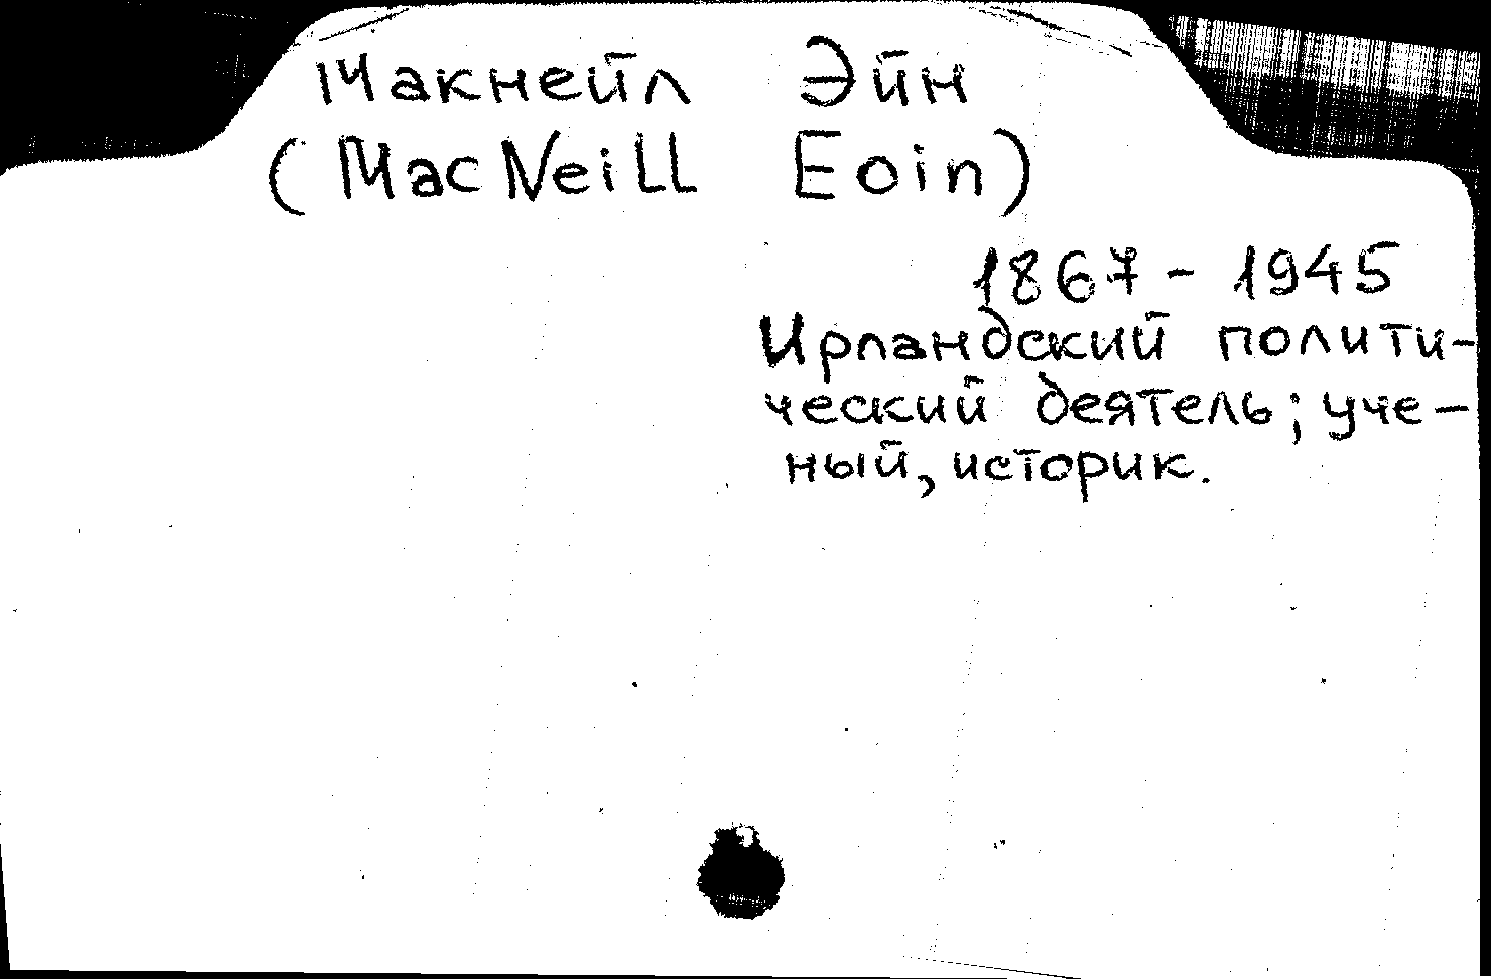 Макнейл Эйн
(MacNeill Eoin)
1867 - 1945
Ирландский полити-
ческий деятель; уче-
ный, историк.